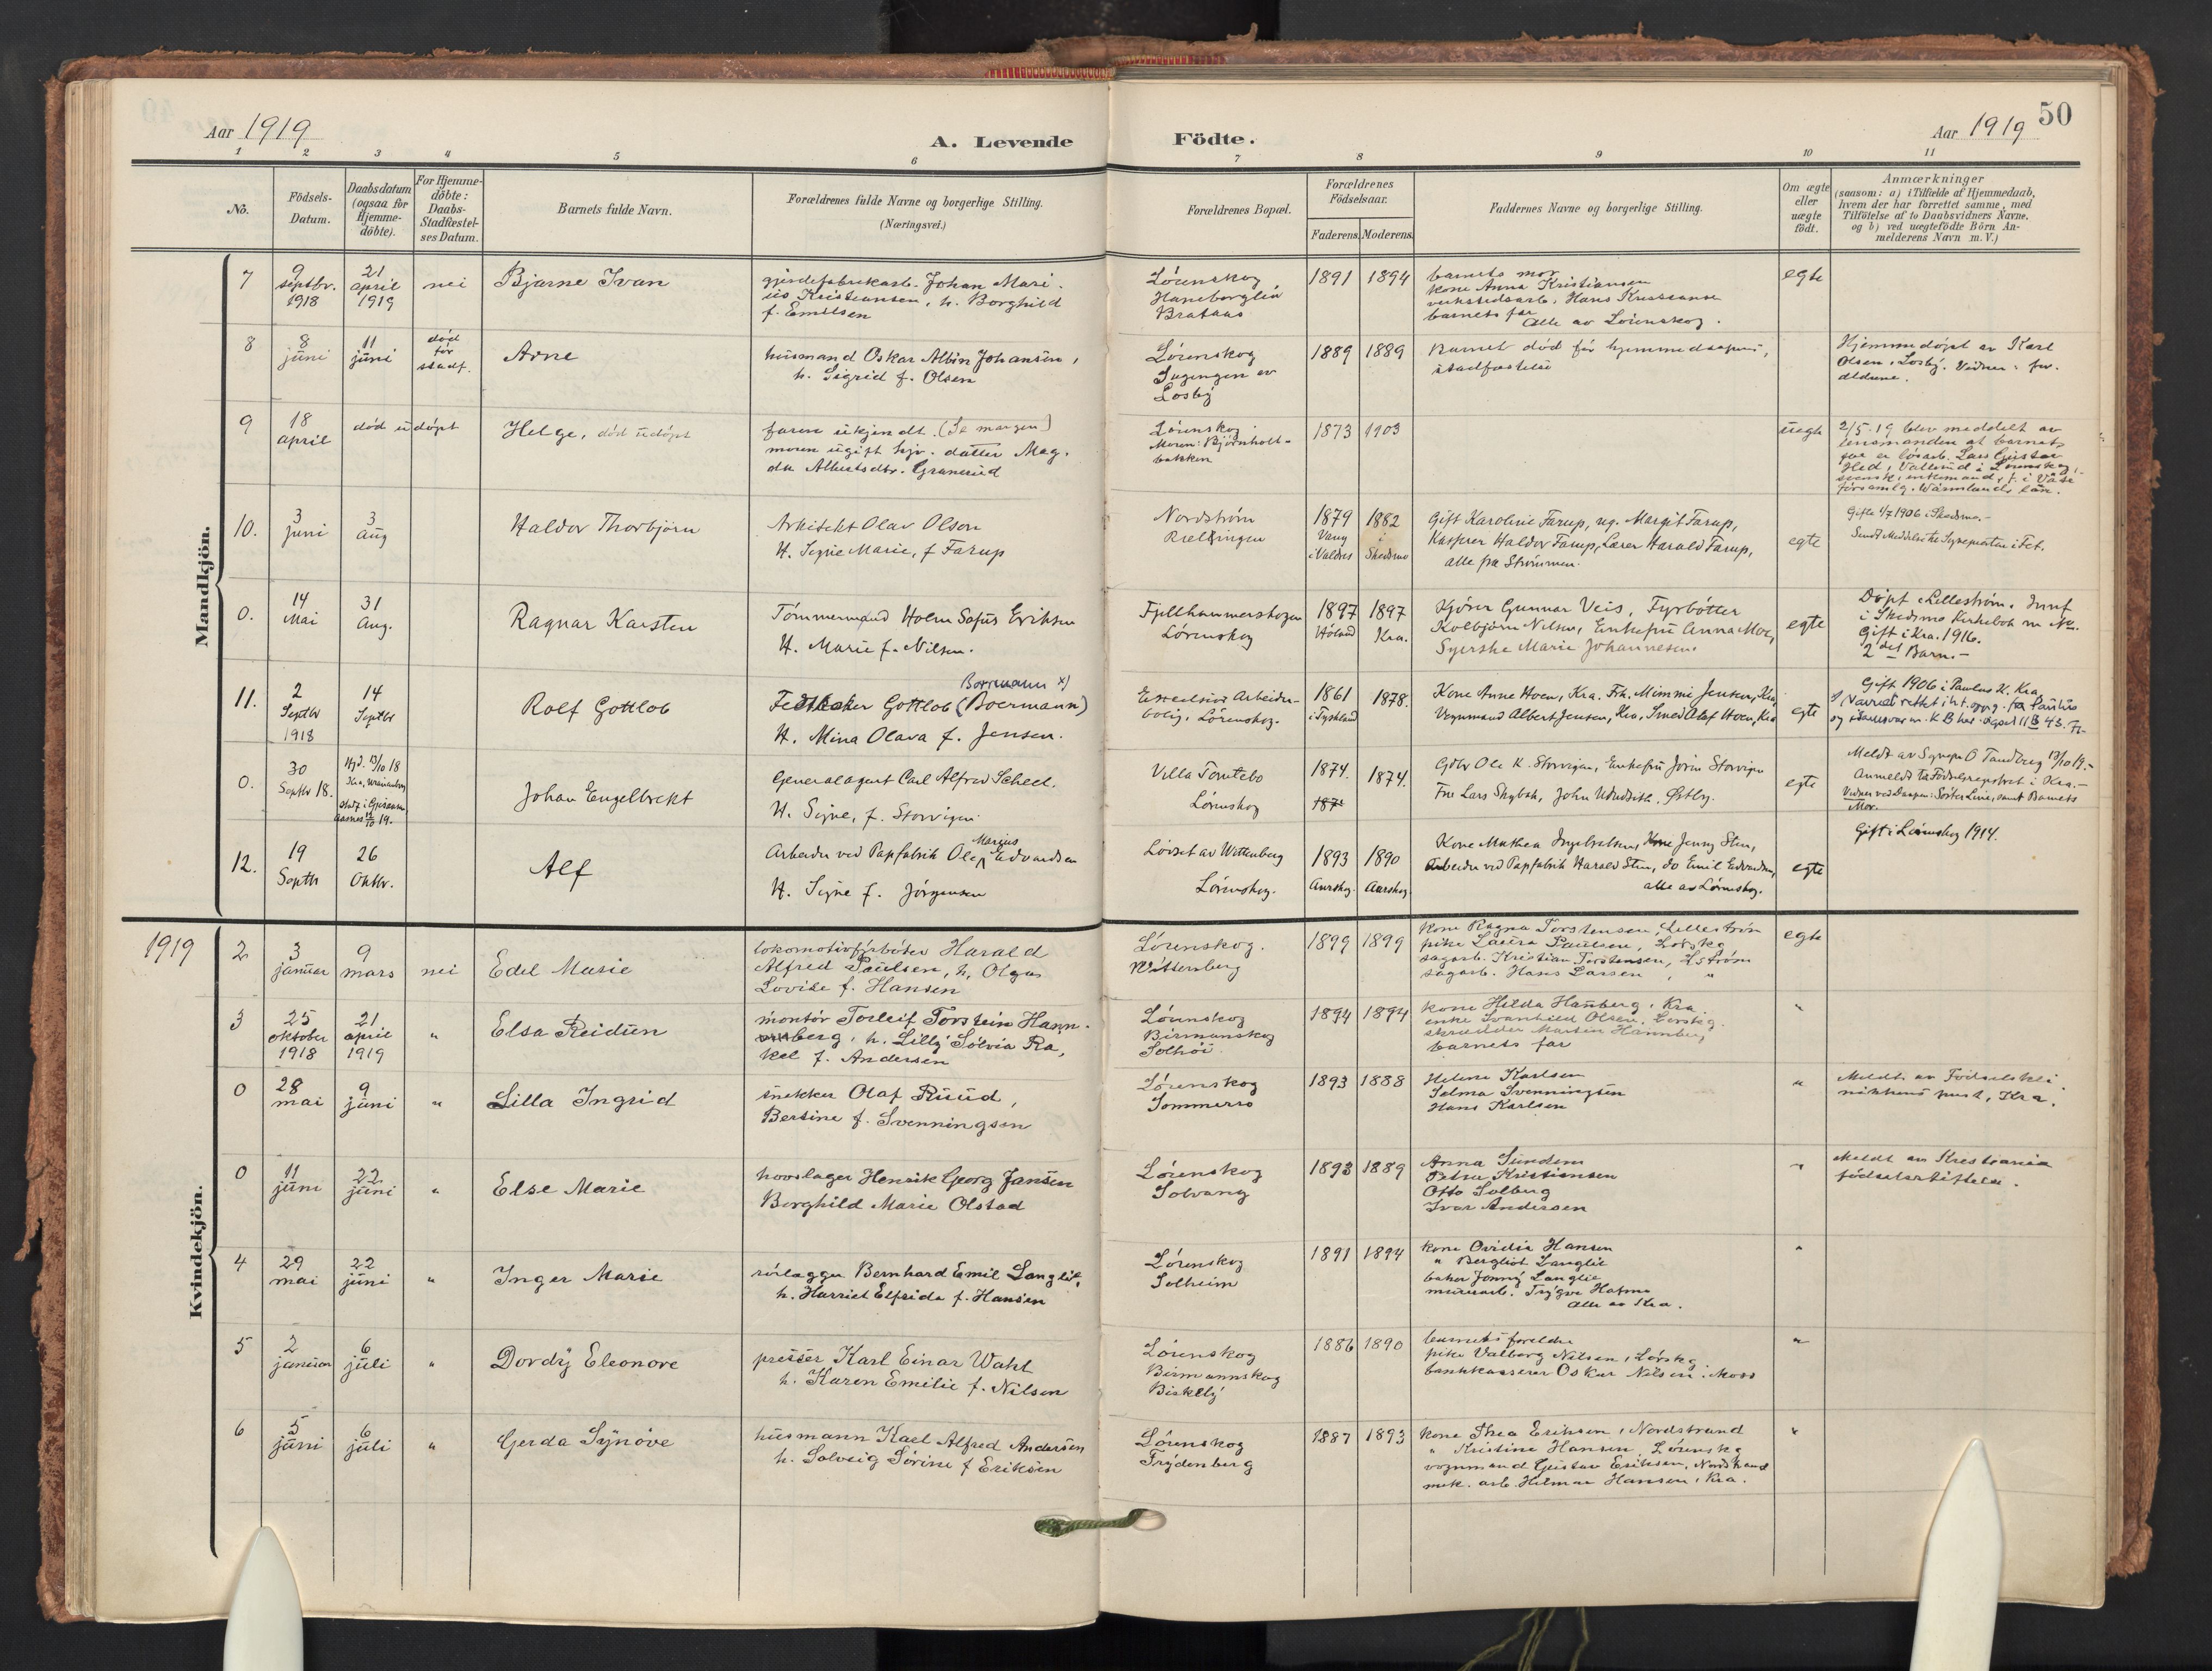 Aar 1919
A. Levende
Födte.
Aar 1919
50
1 2 3 4 5 6 7 8 9 10 11
No.
Födsels-
Datum.
Daabsdatum
(ogsaa for
Hjemme-
döbte).
For Hjemme-
döbte:
Daabs-
Stadfæstel-
ses Datum.
Barnets fulde Navn.
Forældrenes fulde Navne og borgerlige Stilling.
(Næringsvei.)
Forældrenes Bopæl.
Forældrenes
Födselsaar.
Faderens. Moderens.
Faddernes Navne og borgerlige Stilling.
Om ægte
eller
uægte
födt.
Anmærkninger
(saasom: a) i Tilfælde af Hjemmedaab,
hvem der har forrettet samme, med
Tilföielse af to Daabsvidners Navne.
og b) ved uægtefödte Börn An-
melderens Navn m. V.)
Mandkjön.
7
9
septbr.
1918
21
april
1919
nei
Bjarne Ivan
gjerdefabrikarb. Johan Mari-
us Kristiansen, h. Borghild
f. Emilsen
Lörenskog
Haneborglia
Brataas
1891
1894
barnets mor
kone Anna Kristiansen
verkstedsarb. Hans Kristiansen
barnets far
Alle av Lörenskog.
egte
8
8
juni
11
juni
död
för
stadf.
Arne
husmand Oskar Albin Johansen,
h. Sigrid f. Olsen
Lörenskog
av
Losby
1889
1889
Barnet död för hjemmedaapens
stadfæstelse
Hjemmedöpt av Karl
Olsen, Losby. Vidner: for-
ældrene.
9
18
april
död udöpt
Helge, död udöpt
faren ukjendt. (Se margen)
moren ugift hjv. datter Mag-
da Albertsdtr. Granerud
Lörenskog.
Moren: Björnholt-
bakken
1873
1903
uegte
2/5-19 blev meddelt av
lensmanden at barnets
far er lösarb. Lars Gustav
Hed, Vallerud i Lörenskog,
svensk, enkemand, f. i Väse
församlg. Wärmlands län.
10.
3
juni
3
aug
Haldor Thorbjörn
Arkitekt Olav Olson
H. Signe Marie, f Farup
Nordström
Rælingen
1879
Vang
i Valdres
1882
i
Skedsmo
Gift Karoline Farup, ug. Margit Farup,
Kasserer Haldor Farup, Lærer Harald Farup,
alle fra Strömmen.
egte
Gifte 1/7 1906 i Skedsmo.-
Sendt Meddelse til Sognepresten i Fet.
0.
14
Mai
31
Aug.
Ragnar Karsten
Tömmermand Holm Sofus Eriksen
H. Marie f. Nilsen.
Fjellhammerskogen
Lörenskog
1897
Höland
1897
Kra.
Kjörer Gunnar Veis, Fyrböter
Kolbjörn Nilsen, Enkefru Anna Moe,
Syerske Marie Johannesen.
egte
Döpt i Lilleström. Innf
i Skedsmo Kirkebok m No.
Gift i Kra. 1916.
2det Barn.-
11.
2
Septbr
1918
14
Septbr
Rolf Gottlob
Borrmann x)
Gottlob (Boermann)
H. Mina Olava f. Jensen.
Excelsior Arbeider-
bolig. Lörenskog.
1861
i Tyskland
1878.
Kone Anne Hoen, Kra. Frk. Mimmi Jensen, Kra
Vognmand Albert Jensen, Kra, Smed Olaf Hoen, Kra
egte
Gift 1906 i Paulus K. Kra
0.
30
Septbr 18.
Hjd. 13/10 18
Kra,
Johan Engelbrekt
Generalagent Carl Alfred Scheel.
H. Signe, f. Storvigen.
Villa Tomtebo
Lörenskog
1874.
187
1874.
Gdbr Ole K. Storvigen, Enkefru Jörin Storvigen
Fru Lars Skybak, John Østby.
egte
Meldt av Sognepr O Tandberg 13/10 19.-
Anmeldt til Födselsregistret i Kra.-
Vidner ved Daapen: Söster Line, samt Barnets
Mor.
12.
19
Septbr
26
Oktbr.
Alf
Marius
Arbeider ved Papfabrik Ole Edvardsen
H. Signe f. Jörgensen
Lörset av Wittenberg
Lörenskog.
1893
Aurskog.
1890
Aurskog
Kone Mathea Ingebretsen, Kone Jenny Sten,
Arbeider ved Papfabrik Harald Sten, do Emil Edvardsen,
alle av Lörenskog.
egte
Gift i Lörenskog 1914.
Kvindekjön.
1919
2
3
januar
9
mars
nei
Edel Marie
lokomotivfyrböter Harald
Alfred Paulsen, h. Olga
Lovise f. Hansen
Lörenskog.
Wittenberg
1899
1899
kone Ragna Torstensen, Lilleström
pike Laura Paulsen, Lörskg
sagarb. Kristian Torstensen, Lström
sagarb. Hans Larsen, "
egte
3
25
oktober
1918
21
april
1919
"
Elsa Reidun
montör Torleif Torstein Hann-
berg, h. Lilly Solvia Ra-
kel f. Andersen
Lörenskog
Birmanskog
Solhöi
1894
1894
kone Hilda Hannberg, Kra.
enke Svanhild Olsen, Lörskg.
skrædder Martin Hannberg,
barnets far
"
0
28
mai
9
juni
"
Lilla Ingrid
snekker Olaf Ruud,
Bertine f. Svenningsen
Lörenskog
Sommerro
1893
1888
Helene Karlsen
Selma Svenningsen
Hans Karlsen
"
Meldt av Födselskli-
nikkens prest, Kra.
0
11
juni
22
juni
"
Else Marie
hovslager Henrik Georg Jansen
Borghild Marie Olstad
Lörenskog
Solvang
1893
1889
Anna Sundem
Petra Kristiansen
Otto Solberg
Ivar Andersen
"
Meldt av Kristiania
födselsstiftelse.
4
29
mai
22
juni
"
Inger Marie
rörlægger Bernhard Emil Langlie,
h. Harriet Elfrida f. Hansen
Lörenskog
Solheim
1891
1894
kone Ovidia Hansen
" Bergliot Langlie
baker Jonny Langlie
murerarb. Trygve
alle av Kra.
"
5
2
januar
6
juli
"
Dordy Eleonore
presser Karl Einar Wahl
h. Karen Emilie f. Nilsen
Lörenskog
Birmannskog
Birkely
1886
1890
barnets foreldre
pike Valborg Nilsen, Lörskg
bankkasserer Oskar Nilsen, Moss
"
6
5
juni
6
juli
"
Gerda Synöve
husmann Karl Alfred Andersen
h. Solveig Sörine f Eriksen
Lörenskog
Frydenberg
1887
1893
kone Thea Eriksen, Nordstrand
" Kristine Hansen, Lörenskg
vognmand Gustav Eriksen, Nordstrand
mek. arb. Hilmar Hansen, Kra.
"